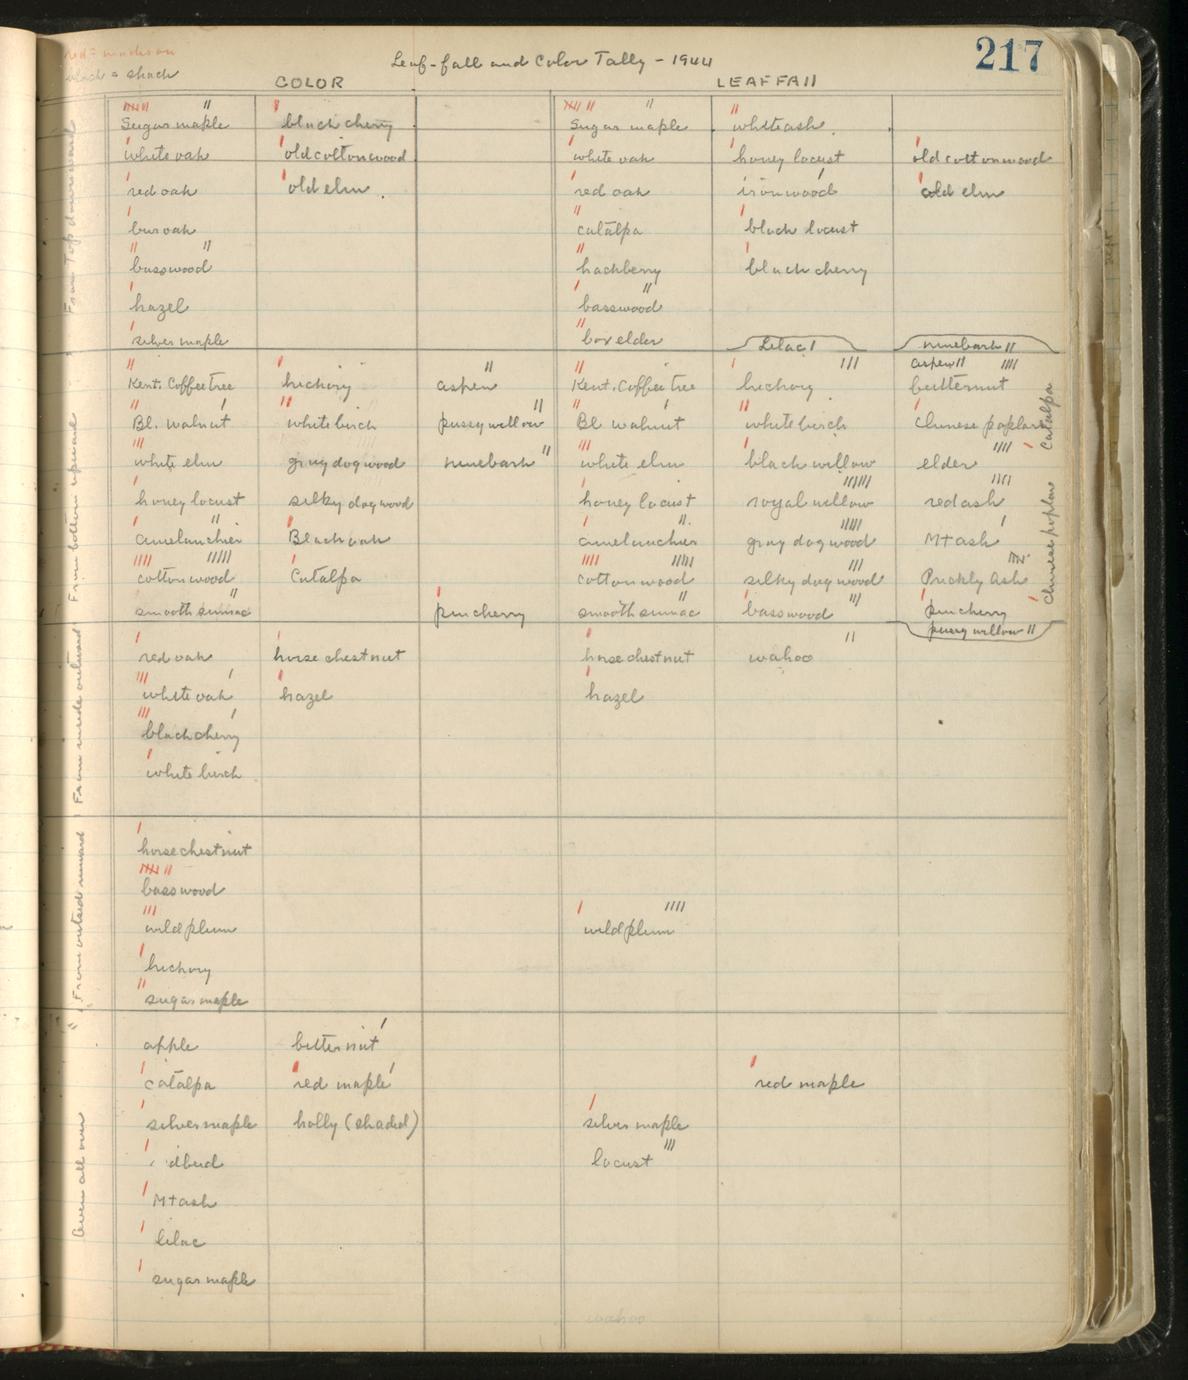 red = madison
black = shack
Leaf-fall and Color Tally - 1944
217
COLOR
LEAF FAll
From Top downward
Sugar maple black cherry
white oak old cottonwood
red oak old elm
bur oak
basswood
hazel
silver maple
Sugar maple white ash
white oak honey locust old cottonwood
red oak ironwood old elm
catalpa black locust
hackberry black cherry
basswood
box elder Lilac I ninebark II
From bottom upward
Kent. Coffee tree hickory aspen
Bl. walnut white birch pussy willow
white elm gray dogwood ninebark
honey locust silky dogwood
amelanchier Black oak
cottonwood Catalpa
smooth sumac pin cherry
aspen II
Kent. Coffee tree hickory butternut
Bl walnut white birch Chinese poplar
white elm black willow elder
honey locust royal willow red ash
amelanchier gray dogwood Mt ash
cottonwood silky dogwood Prickly Ash
smooth sumac basswood pin cherry
pussy willow II
Catalpa
Chinese poplar
From inside outward
red oak horse chestnut
white oak hazel
black cherry
white birch
horse chestnut wahoo
hazel
From outside inward
horse chestnut
basswood
wild plum
hickory
sugar maple
wild plum
over all over
apple butternut
catalpa red maple
silver maple holly (shaded)
dbud
Mt ash
lilac
sugar maple
red maple
silver maple
locust
wahoo